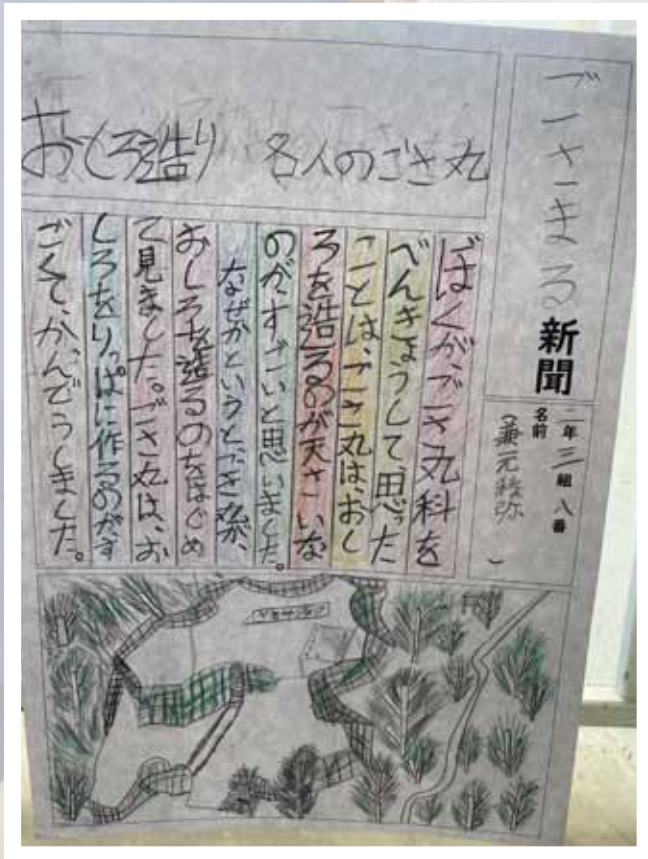 ごさまる新聞
二年 三組 八番
名前
おしろ造り 名人のごさ丸
ぼくが、ごさ丸科を
べんきょうして、思った
ことは、ごさ丸は、おし
ろを造るのが天さいな
のが、すごいと思いました。
なぜかというとごさ丸が、
おしろを造るのをはじめ
て見ました。ごさ丸は、お
しろをりっぱに作るのがす
ごくて、かんどうしました。